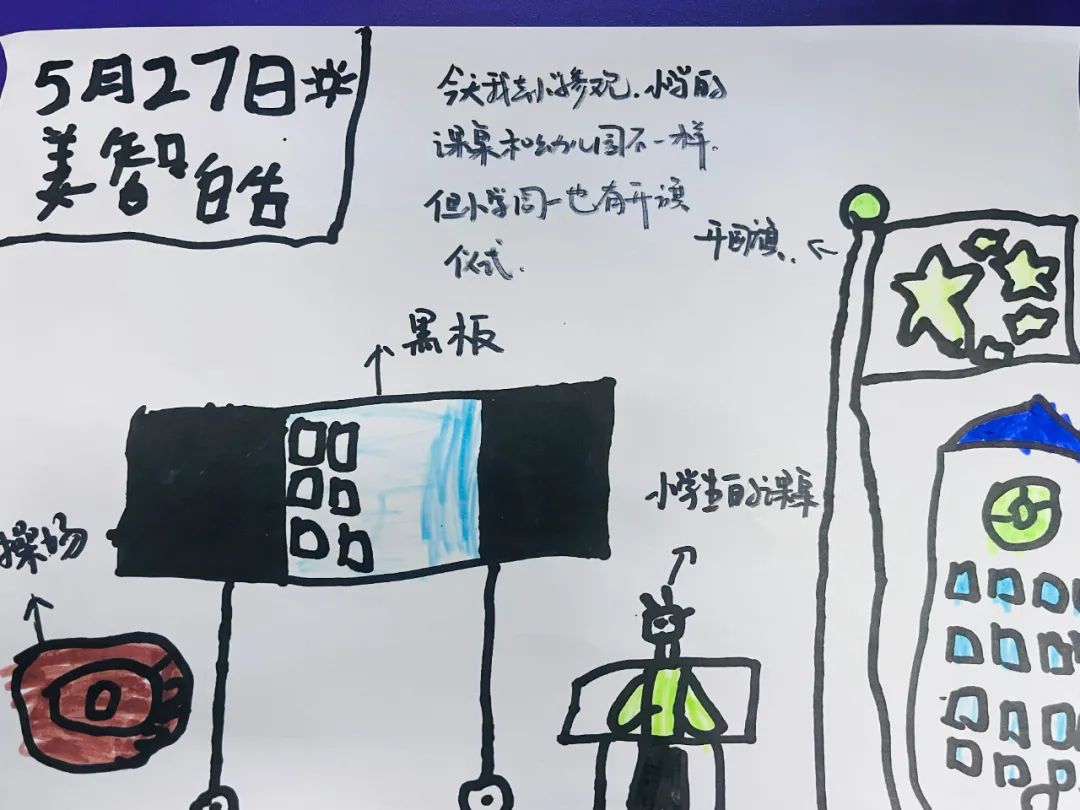 5月27日
姜智皓
今天我去小学参观.小学的
课桌和幼儿园不一样.
但小学周一也有升旗
仪式.
升国旗.
黑板
小学生的课桌
操场